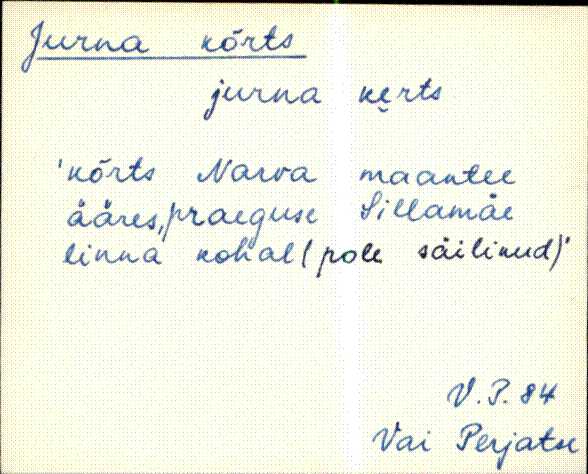 Jurna kõrts
jurna ke̮rts
'kõrts Narva maantee
ääres, praeguse Sillamäe
linna kohal (pole säilinud)'
V.P. 84
Vai Perjatse